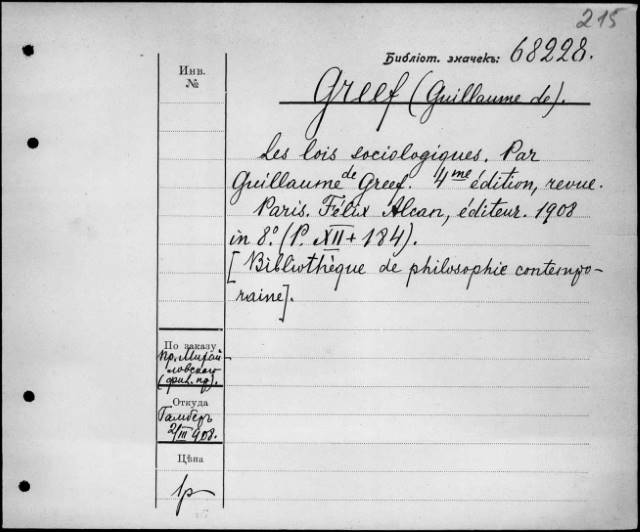 215
Библіот. значекъ: 68228.
Инв.
№
Greef (Guillaume de).
Les lois sociologiques. Par
Guillaume de Greef. 4me édition, revue.
Paris. Félix Alcan, éditeur. 1908
in 8.° (P. XII + 184).
[Bibliothèque de philosophie contempo-
raine].
По заказу
Пр. Михай-
ловскаго
Откуда
Гамберъ
2/III 908.
Цѣна
1р